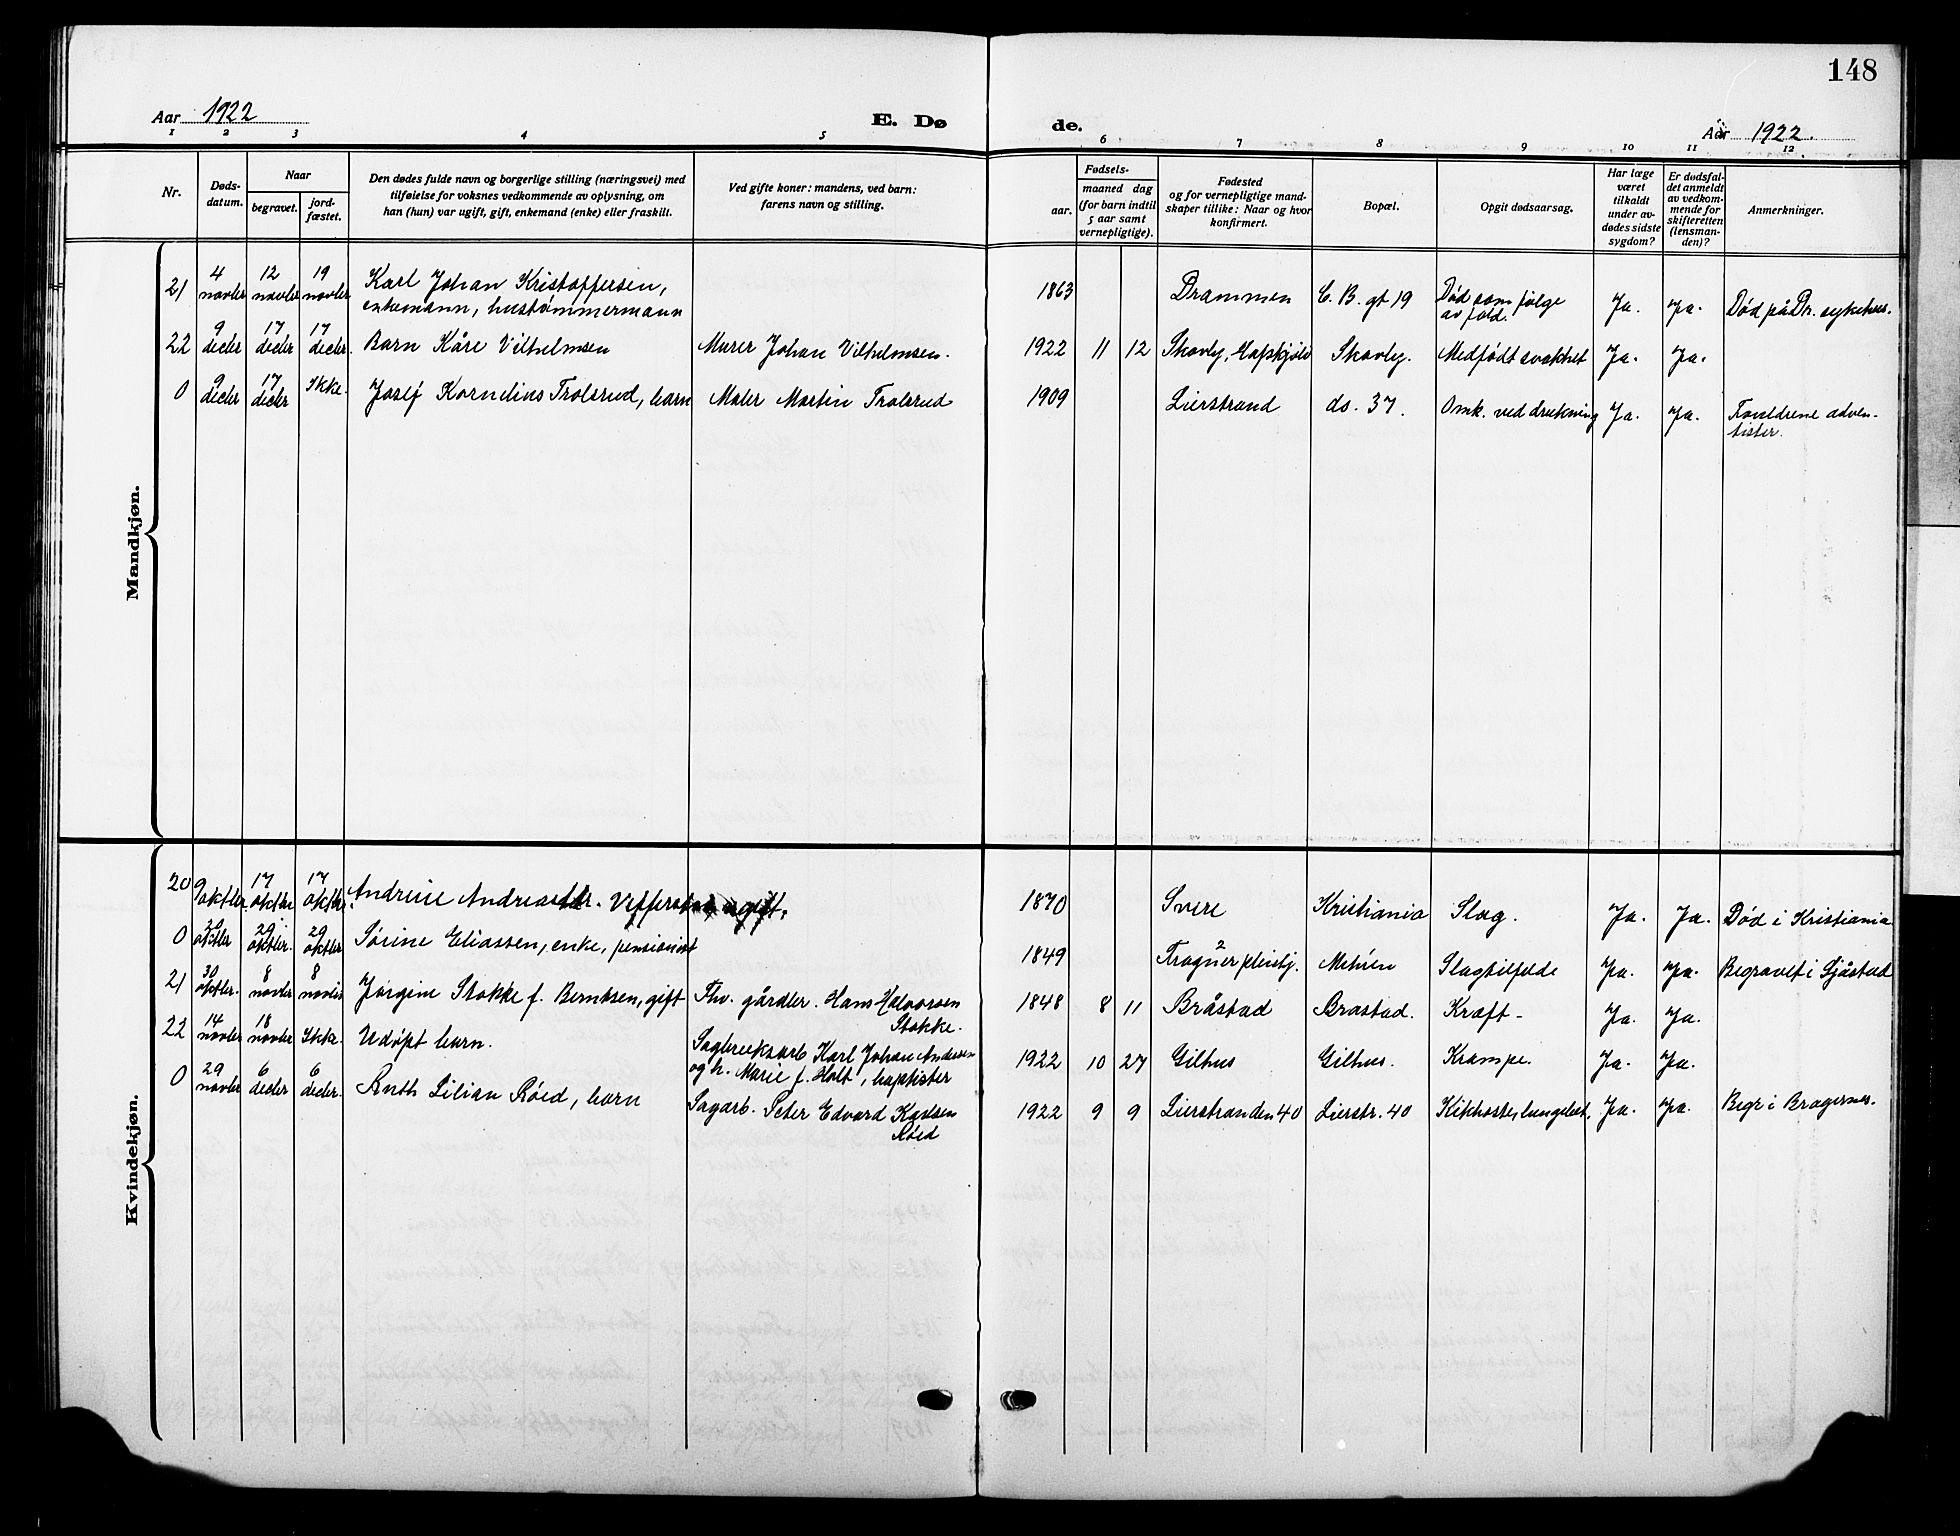 148
Aar 1922
E. Dø
de.
Aar 1922.
1 2 3 4 5 6 7 8 9 10 11 12
Nr.
Døds-
datum.
Naar
begravet.
jord-
fæstet.
Den dødes fulde navn og borgerlige stilling (næringsvei) med
tilføielse for voksnes vedkommende av oplysning, om
han (hun) var ugift, gift, enkemand (enke) eller fraskilt.
Ved gifte koner: mandens, ved barn:
farens navn og stilling.
Fødsels-
aar.
maaned dag
(for barn indtil
5 aar samt
vernepligtige).
Fødested
og for vernepligtige mand-
skaper tillike: Naar og hvor
konfirmert.
Bopæl.
Opgit dødsaarsag.
Har læge
været
tilkaldt
under av-
dødes sidste
sygdom?
Er dødsfal-
det anmeldt
av vedkom-
mende for
skifteretten
(lensman-
den)?
Anmerkninger.
Mandkjøn.
21 4 novbr 12 novbr 19 novbr Karl Johan Kristoffersen,
enkemann, hustømmermann
1863 Drammen C. B. gt 19 Død som følge
av fald. Ja. Ja. Død på Dr. sykehus.
22 9 decbr 17 decbr 17 decbr. Barn Kåre Vilhelmsen Murer Johan Vilhelmsen. 1922 11 12 Skovly, Skovly. Medfødt svakhet Ja. Ja.
0 9 decbr 17 decbr Ikke. Josef Kornelius Trolsrud, barn Maler Martin Trolsrud 1909 Lierstrand do. 37. Omk. ved drukning Ja. Ja. Forældrene adven-
tister.
Kvindekjøn.
20 9 oktbr. 17 oktbr 17 oktbr. Andrine Andreasdtr. ugift. 1870 Svere Kristiania Slag. Ja. Ja. Død i Kristiania
0 20 oktbr 29 oktbr. 29 oktbr Sørine Eliassen, enke, pensionist 1849 Mehren Slagtilfelde Ja. Ja. Begravet i Sjåstad
21 30 oktbr. 8 novbr 8 novbr Jørgine Stokke f. Berntsen, gift Fhv. gårdbr. Hans Halvorsen
Stokke. 1848 8 11 Bråstad Brastad. Kræft - Ja. Ja.
22 14 novbr 18 novbr Ikke. Udøpt barn. Sagbruksarb Karl Johan Andersen
og h. Marie f. Holt, baptister 1922 10 27 Gilhus Gilhus. Krampe. Ja. Ja.
0 29 novbr 6 decbr 6 decbr. Ruth Lilian Røed, barn Sagarb. Peter Edvard Karlsen
Røed 1922 9 9 Lierstranden 40 Lierstr. 40 Kikhoste, lungebet. Ja. Ja. Begr i Bragernes.